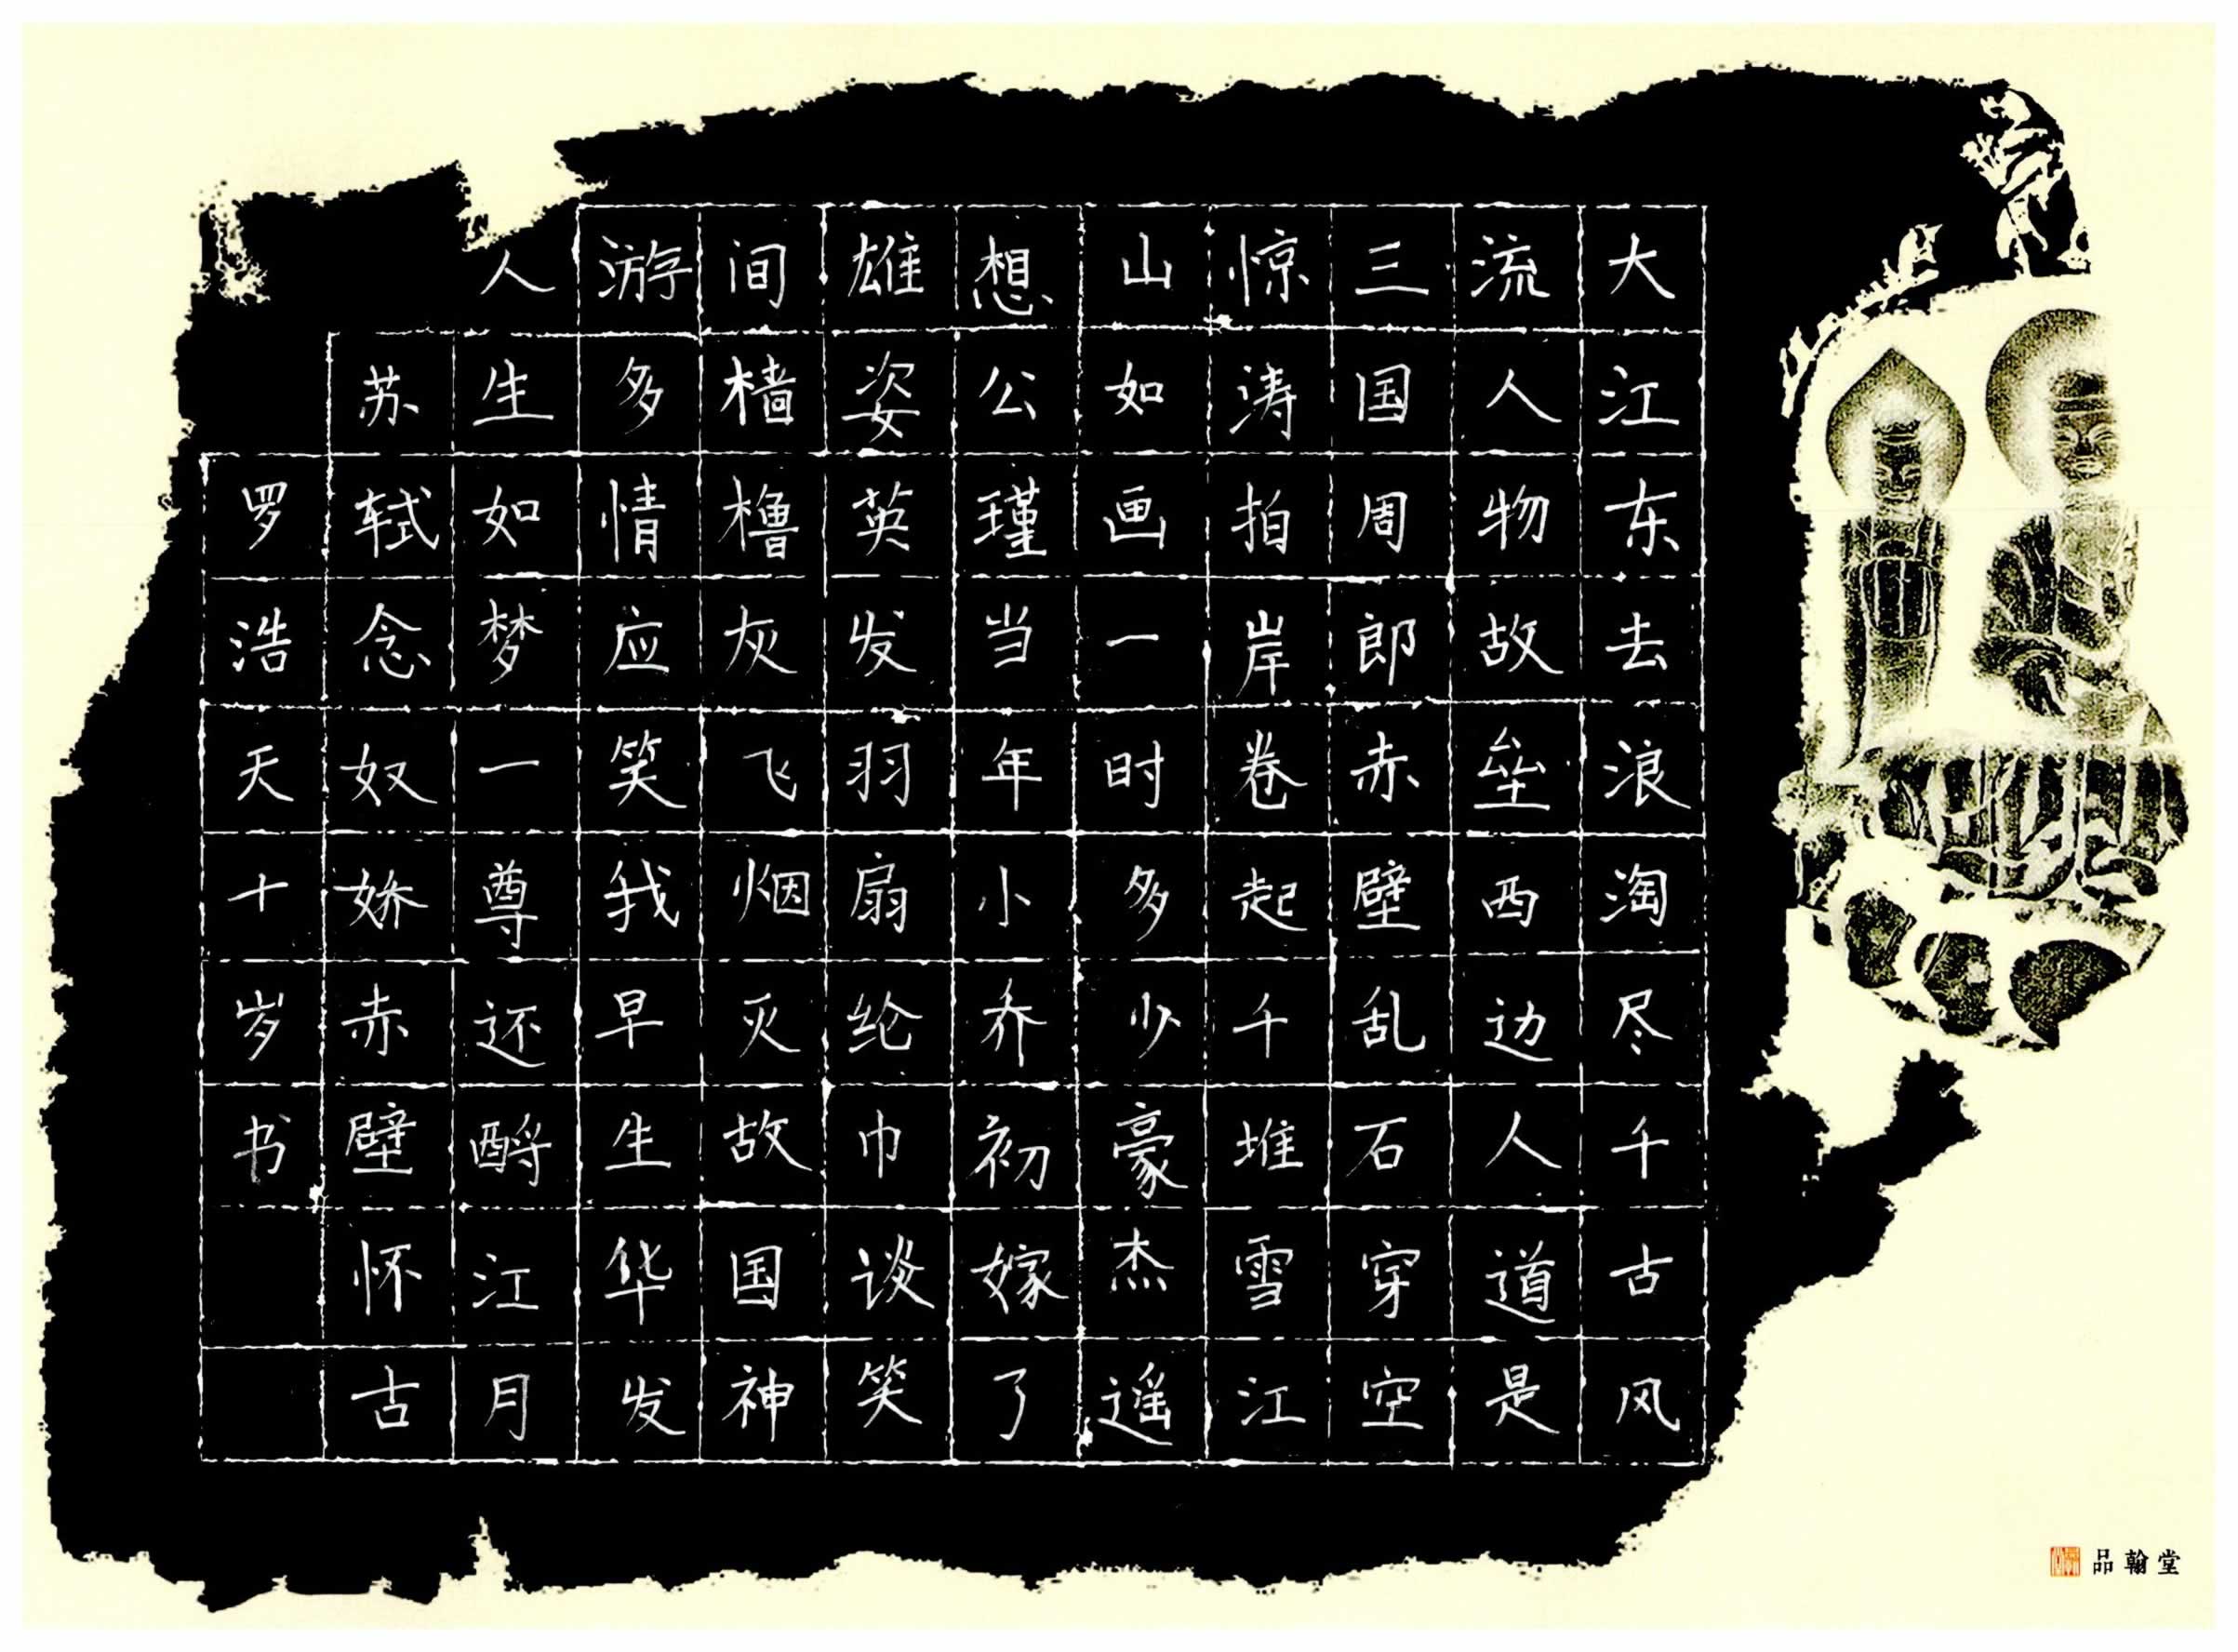 大江东去浪淘尽千古风
流人物故垒西边人道是
三国周郎赤壁乱石穿空
惊涛拍岸卷起千堆雪江
山如画一时多少豪杰遥
想公瑾当年小乔初嫁了
雄姿英发羽扇纶巾谈笑
间樯橹灰飞烟灭故国神
游多情应笑我早生华发
人生如梦一尊还酹江月
苏轼念奴娇赤壁怀古
罗浩天十岁书
品翰堂